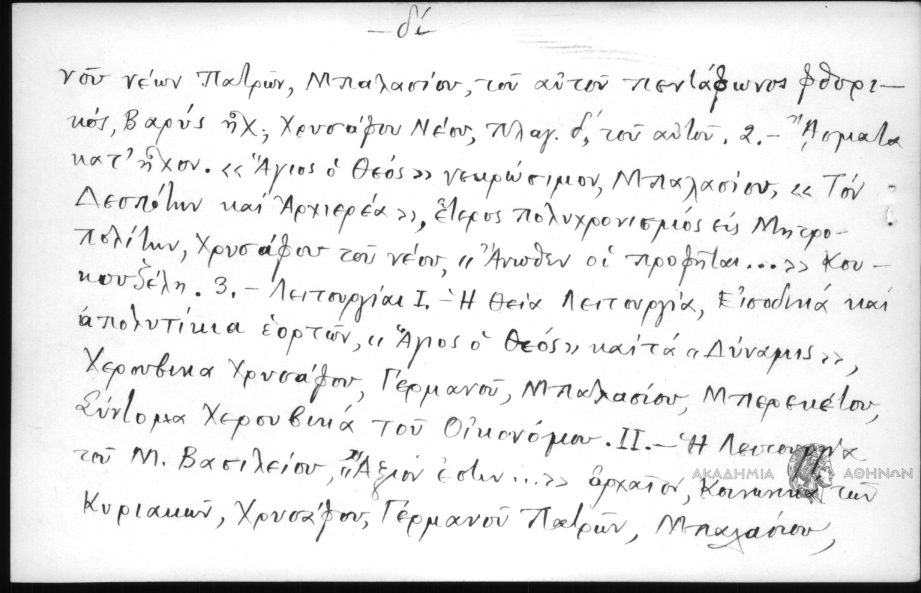 — δ´ —
νοῦ νέων Πατρῶν, Μπαλασίου, τοῦ αὐτοῦ πεντάφωνος φθορι-
κός, Βαρύς ἦχ., Χρυσάφου Νέου, πλαγ. δ´, τοῦ αὐτοῦ. 2.- ᾌσματα
κατ' ἦχον. «Ἅγιος ὁ Θεός» νεκρώσιμον, Μπαλασίου, «Τόν
Δεσπότην καί Ἀρχιερέα», ἕτερος πολυχρονισμός εἰς Μητρο-
πολίτην, Χρυσάφου τοῦ νέου, «Ἄνωθεν οἱ προφῆται...» Κου-
κουζέλη. 3.- Λειτουργίαι I.- Ἡ Θεία Λειτουργία, Εἰσοδικά καί
ἀπολυτίκια ἑορτῶν, «Ἅγιος ὁ Θεός» καί τά «Δύναμις»,
Χερουβικά Χρυσάφου, Γερμανοῦ, Μπαλασίου, Μπερεκέτου,
Σύντομα Χερουβικά τοῦ Οἰκονόμου. II.- Ἡ Λειτουργία
τοῦ Μ. Βασιλείου, "Ἄξιόν ἐστιν...» ἀρχαῖον, Κοινωνικά τῶν
Κυριακῶν, Χρυσάφου, Γερμανοῦ Πατρῶν, Μπαλασίου,
ΑΚΑΔΗΜΙΑ ΑΘΗΝΩΝ